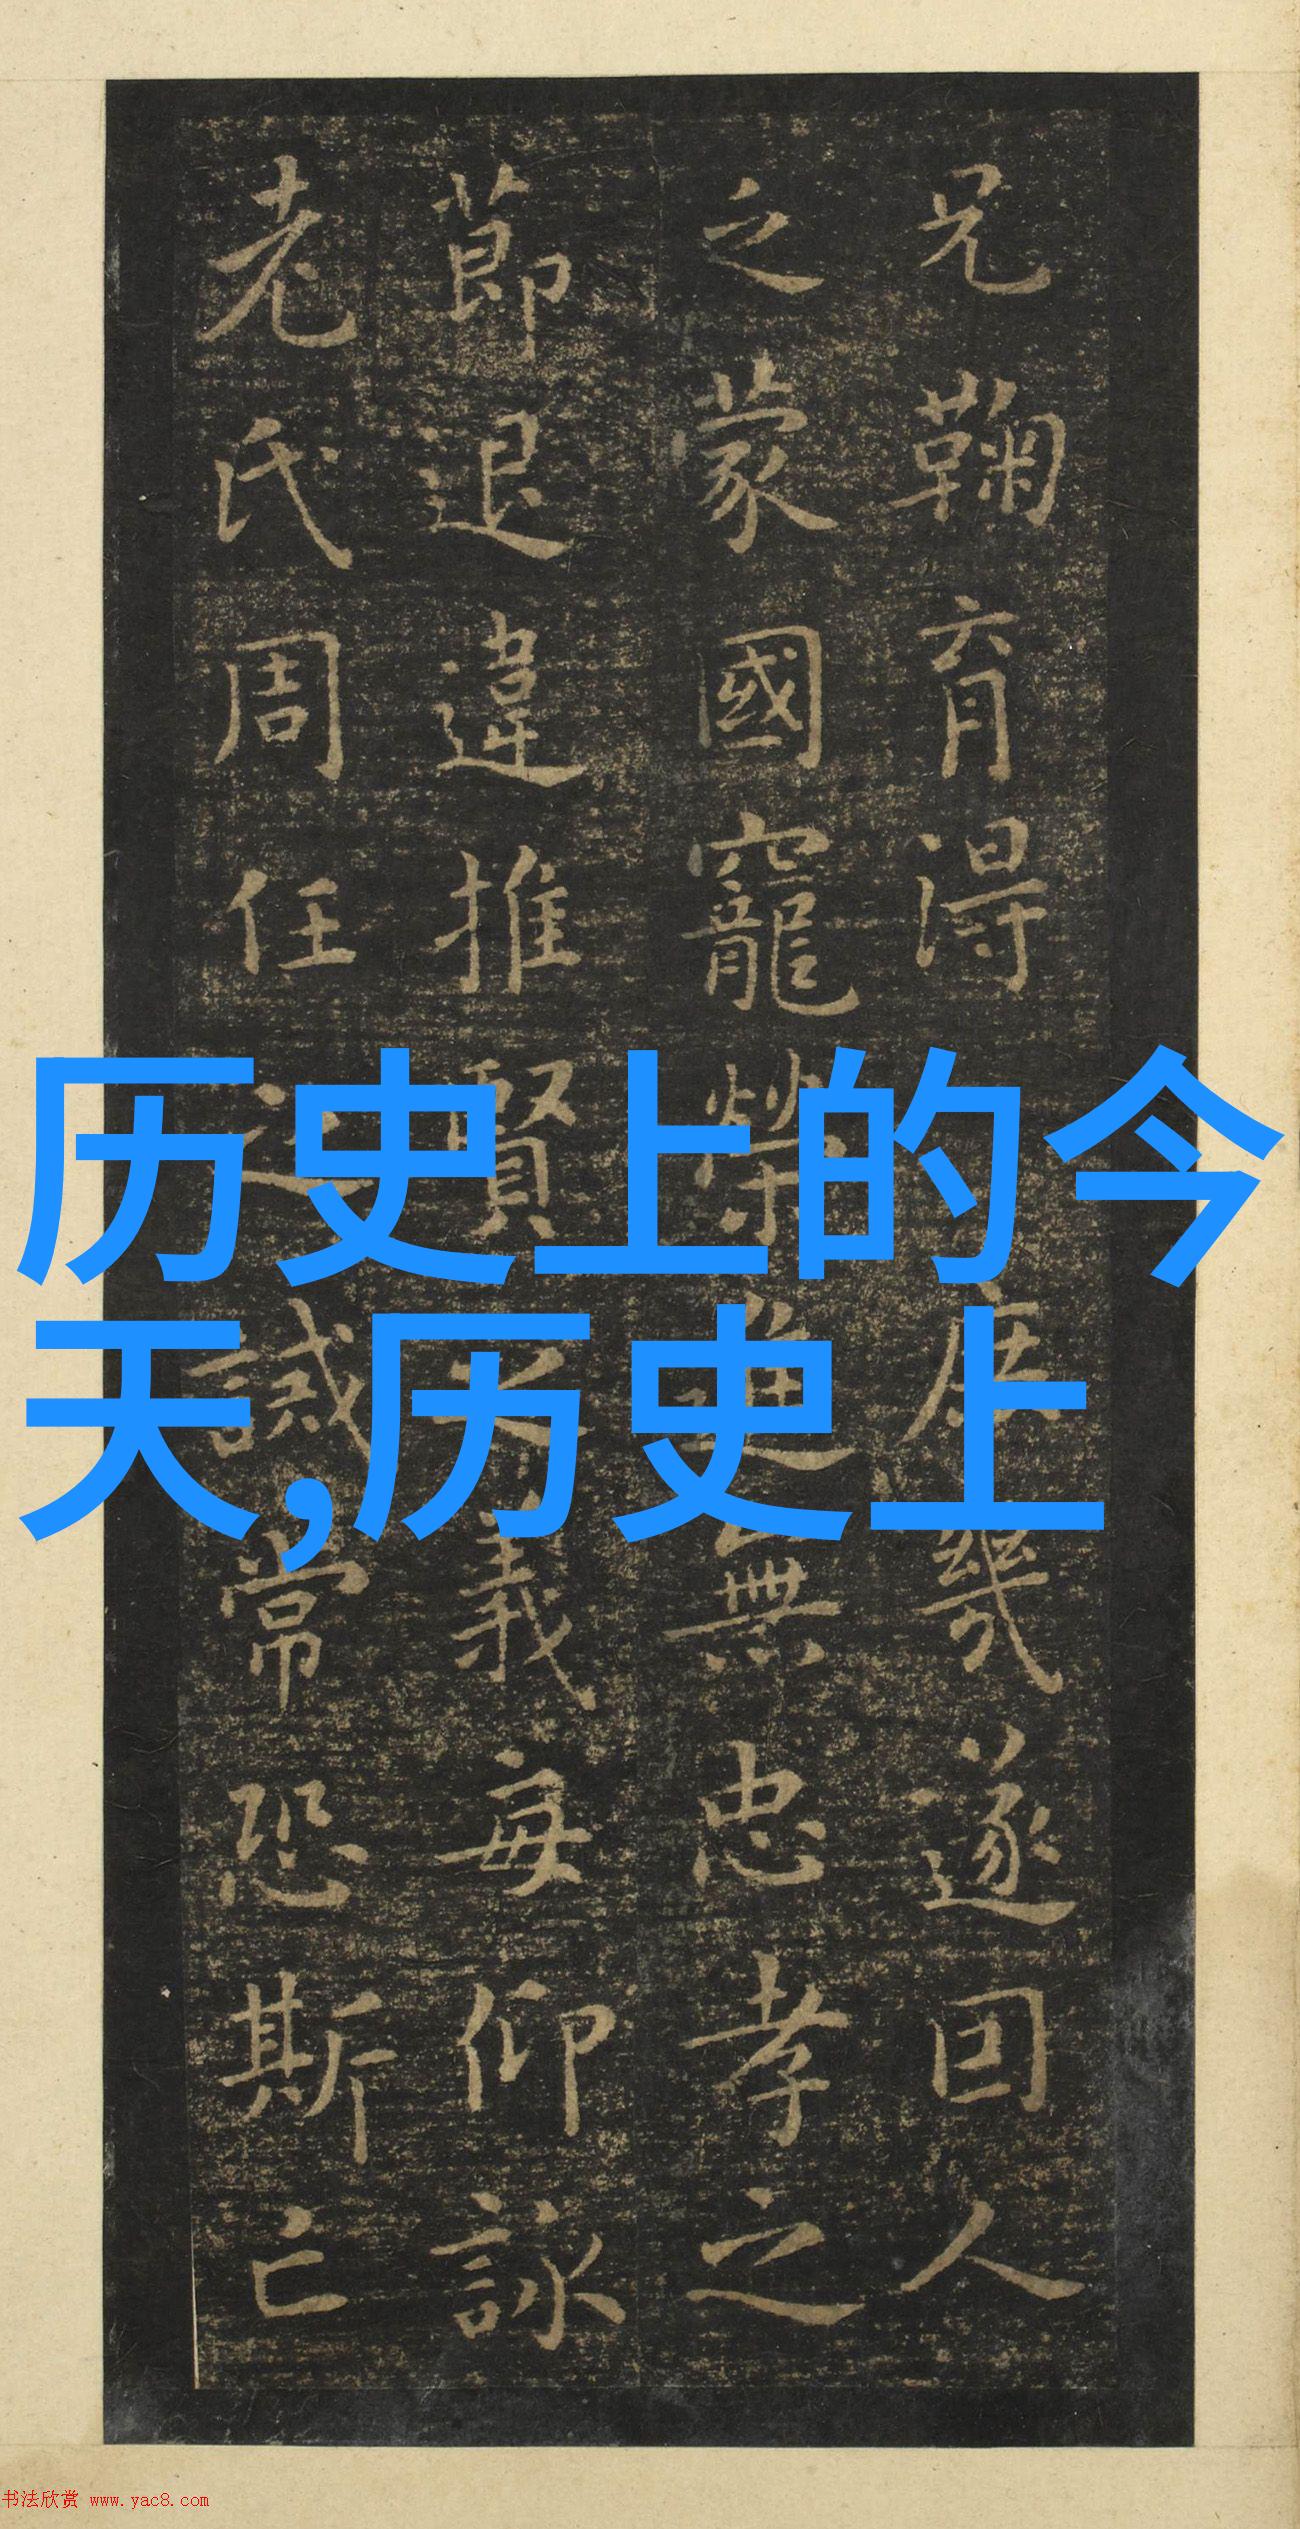 兄鞠育得
庶幾遂回人
之蒙國寵榮進無忠孝之
節退違推賢之義每仰詠
老氏周任之誡常恐斯亡
历史上的今
天,历史上
书法欣赏 www.yac8.com